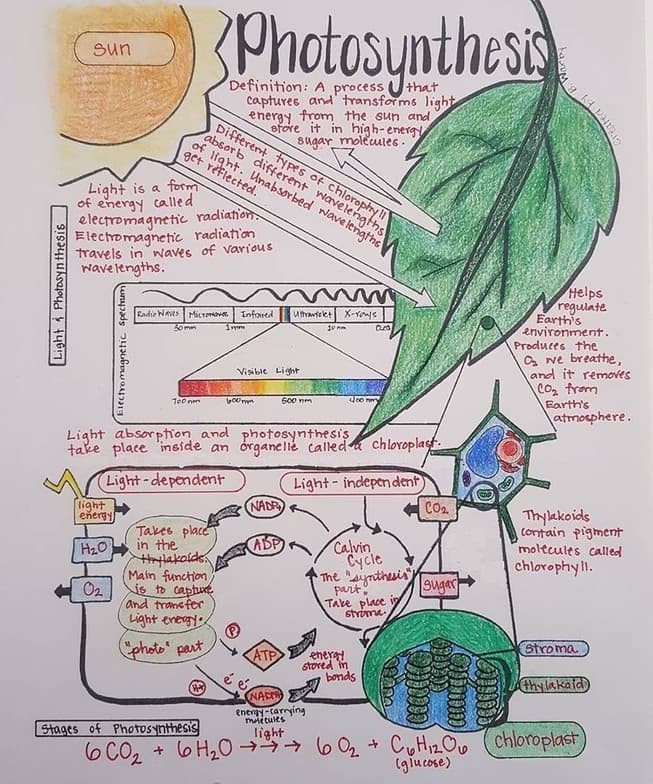 Photosynthesis
sun
created by B. Murray
Definition: A process that
captures and transforms light
energy from the sun and
store it in high-energy
sugar molecules.
Different types of chlorophyll
absorb different wavelengths
of light. Unabsorbed wavelengths
get reflected.
Light & Photosynthesis
Light is a form
of energy called
electromagnetic radiation.
Electromagnetic radiation
travels in waves of various
wavelengths.
Electromagnetic Spectrum
Radio Waves Microwave Infrared Ultraviolet X-rays
30 mm 1 mm 10 nm
Visible Light
700 nm 600 nm 500 nm 400 nm
Helps
regulate
Earth's
environment.
Produces the
O₂ we breathe,
and it removes
CO₂ from
Earth's
atmosphere.
Light absorption and photosynthesis
take place inside an organelle called a chloroplast.
Light-dependent
Light-independent
light
energy
H₂O
O₂
Takes place
in the
thylakoids.
Main function
is to capture
and transfer
Light energy.
"photo" part
NADP+
ADP
Calvin
Cycle
The "synthesis"
part.
Take place in
stroma.
CO₂
sugar
P
ATP
H+
e⁻ e⁻
NADPH
energy-carrying
molecules
energy
stored in
bonds
Thylakoids
contain pigment
molecules called
chlorophyll.
stroma
thylakoid
chloroplast
Stages of Photosynthesis
light
6 CO₂ + 6 H₂O →→→ 6 O₂ + C₆H₁₂O₆
(glucose)